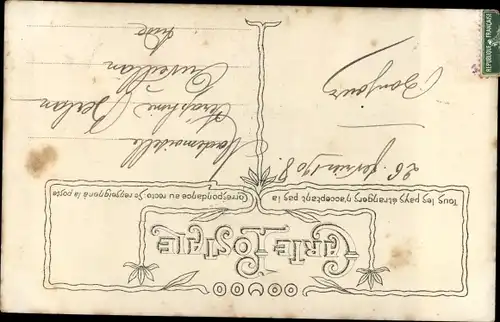 CARTE POSTALE
Tous les pays étrangers n'acceptant pas la
correspondance au recto se renseigner à la poste
26 Janvier 1908
Bonjour
Mademoiselle
Séraphine
REPUBLIQUE FRANÇAISE